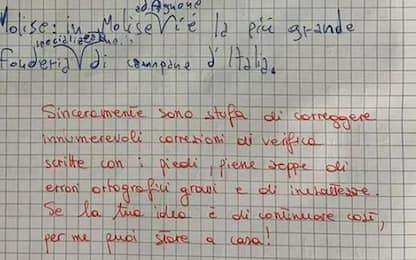 ad Agnone
Molise: in Molise v'è la più grande
specializzata
fonderia di campane d'Italia.
Sinceramente sono stufa di correggere
innumerevoli correzioni di verifica
scritte con i piedi, piene zeppe di
errori ortografici gravi e di inesattezze.
Se la tua idea è di continuare così,
per me puoi stare a casa!